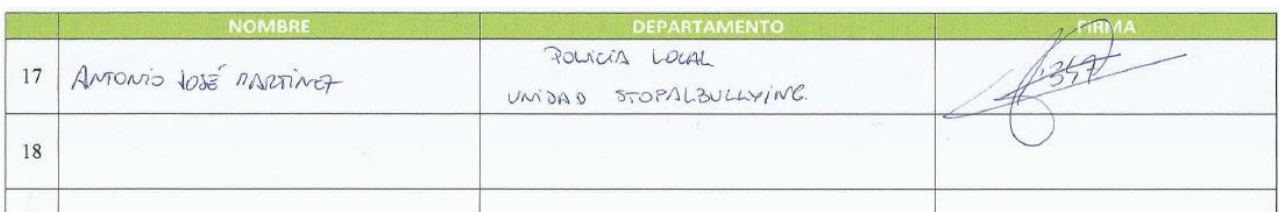 NOMBRE DEPARTAMENTO FIRMA
17 ANTONIO JOSÉ MARTÍNEZ POLICÍA LOCAL
UNIDAD STOPALBULLYING.
18